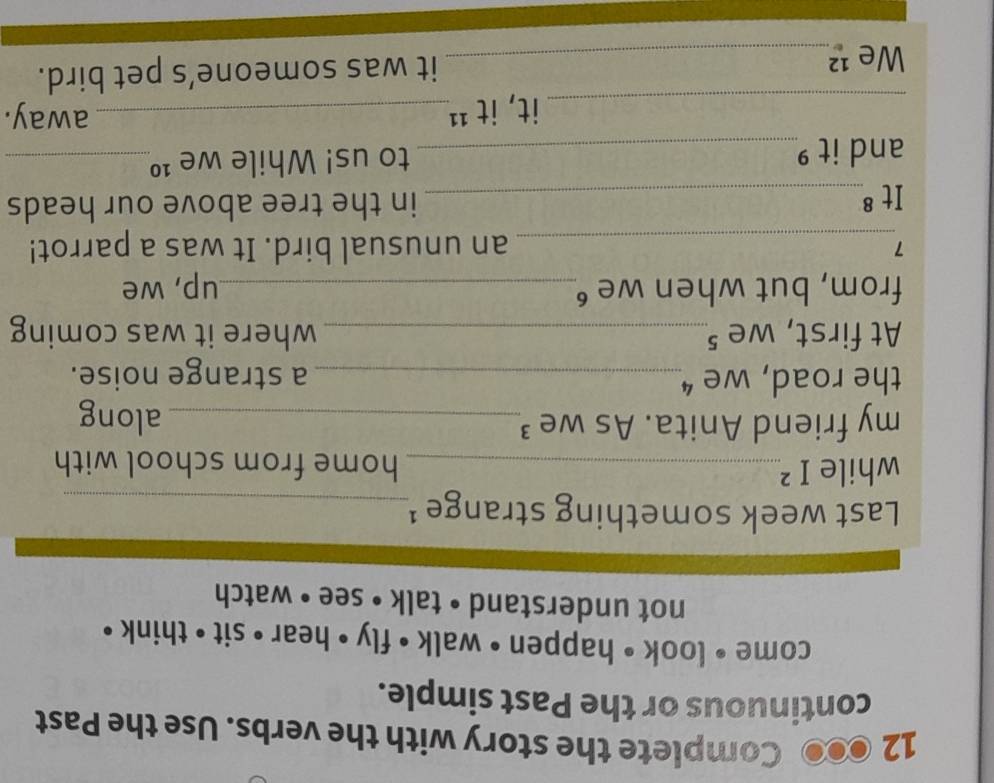 12 Complete the story with the verbs. Use the Past
continuous or the Past simple.
come • look • happen • walk • fly • hear • sit • think •
not understand • talk • see • watch
Last week something strange 1
while I 2 home from school with
my friend Anita. As we 3 along
the road, we 4 a strange noise.
At first, we 5 where it was coming
from, but when we 6 up, we
7 an unusual bird. It was a parrot!
It 8 in the tree above our heads
and it 9 to us! While we 10
it, it 11 away.
We 12 it was someone's pet bird.